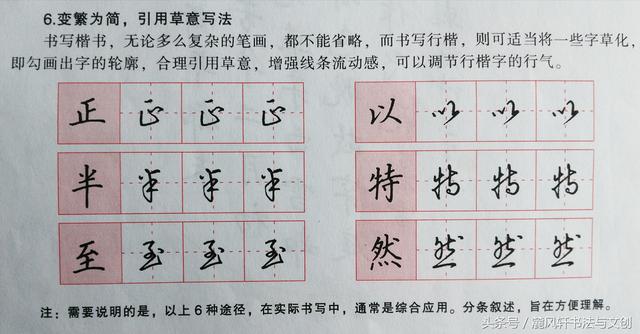 6.变繁为简，引用草意写法
书写楷书，无论多么复杂的笔画，都不能省略，而书写行楷，则可适当将一些字草化，
即勾画出字的轮廓，合理引用草意，增强线条流动感，可以调节行楷字的行气。
正 正 正 正 以 以 以 以
半 半 半 半 特 特 特 特
至 至 至 至 然 然 然 然
注：需要说明的是，以上6种途径，在实际书写中，通常是综合应用。分条叙述，旨在方便理解。
头条号／陋风轩书法与文创